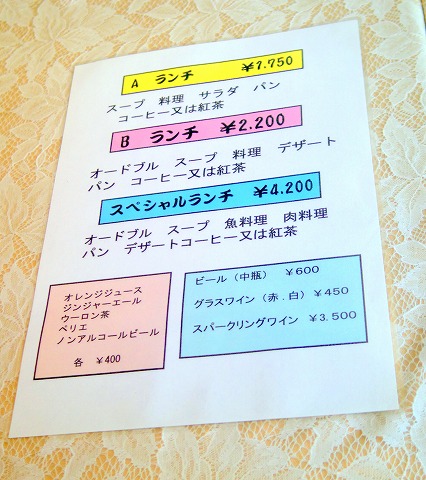 A ランチ ￥1.750
スープ 料理 サラダ パン
コーヒー又は紅茶
B ランチ ￥2.200
オードブル スープ 料理 デザート
パン コーヒー又は紅茶
スペシャルランチ ￥4.200
オードブル スープ 魚料理 肉料理
パン デザートコーヒー又は紅茶
オレンジジュース
ジンジャーエール
ウーロン茶
ペリエ
ノンアルコールビール
各 ￥400
ビール（中瓶） ￥600
グラスワイン（赤.白）￥450
スパークリングワイン ￥3.500